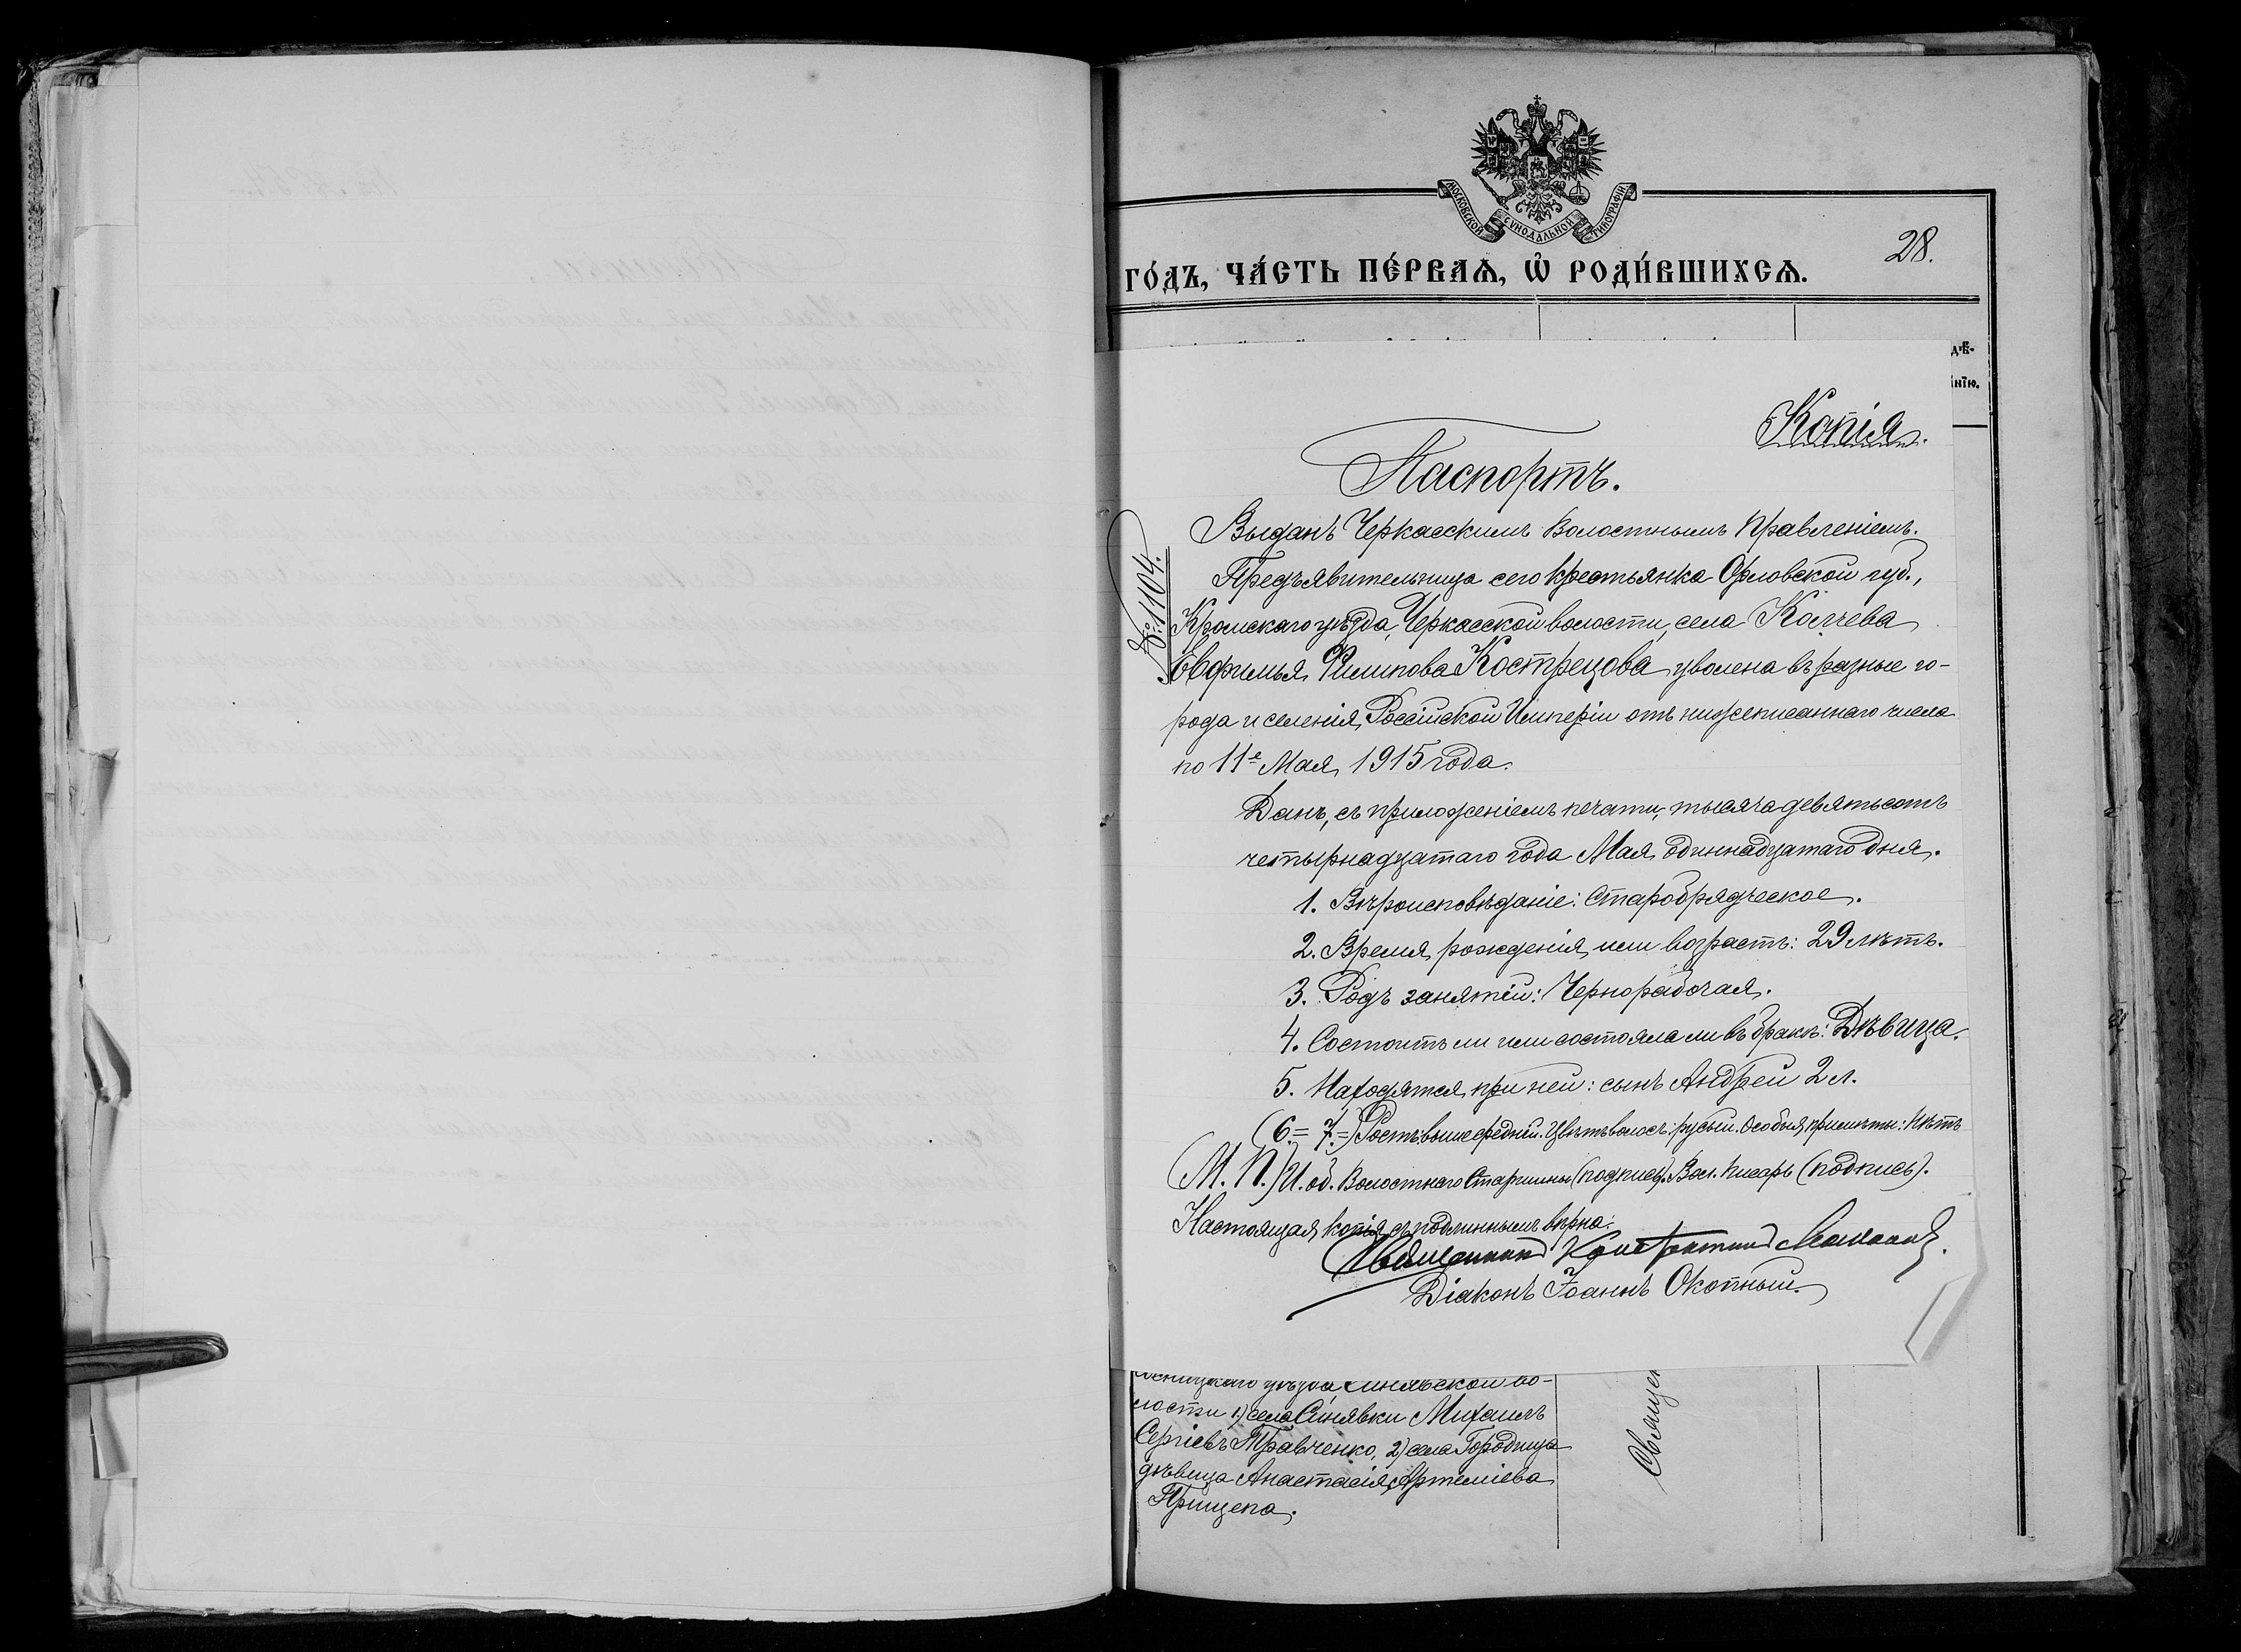 МОСКОВСКОЙ СѴНОДАЛЬНОЙ ТИПОГРАФІИ
28.
ГО́ДЪ, ЧА́СТЬ ПЕ́РВАѦ, Ѡ҆ РОДИ́ВШИХСѦ.
дѣ-
нїю.
Копія.
Паспортъ.
№ 1104.
Выданъ Черкасскимъ Волостнымъ Правленіемъ.
Предъявительница сего крестьянка Орловской губ.,
Кромскаго уѣзда, Черкасской волости, села Колчева
Евфимья Филипова Кострецова уволена въ разные го-
рода и селенія Россійской Имперіи отъ нижеписаннаго числа
по 11е Мая 1915 года.
Данъ, съ приложеніемъ печати, тысяча девятьсотъ
четырнадцатаго года Мая одиннадцатаго дня.
1. Вѣроисповѣданіе: Старобрядческое.
2. Время рожденія или возрастъ: 29 лѣтъ.
3. Родъ занятій: Чернорабочая.
4. Состоитъ ли или состояла ли въ бракѣ: Дѣвица.
5. Находятся при ней: сынъ Андрей 2 л.
(6.= 7.=) Ростъ: выше средній. Цвѣтъ волосъ: русый. Особыя примѣты: Нѣтъ
(М. П.) И. об. Волостнаго Старшины (подпись). Вол. Писарь (подпись).
Настоящая копія съ подлиннымъ вѣрна:
Священникъ Константинъ
Діаконъ Іоаннъ Окопный.
уѣзда, Синявской во-
лости 1) села Синявки Михаилъ
Сергіевъ Кравченко, 2) села Городища
дѣвица Анастасія Артеміева
Прищепа.
Священ